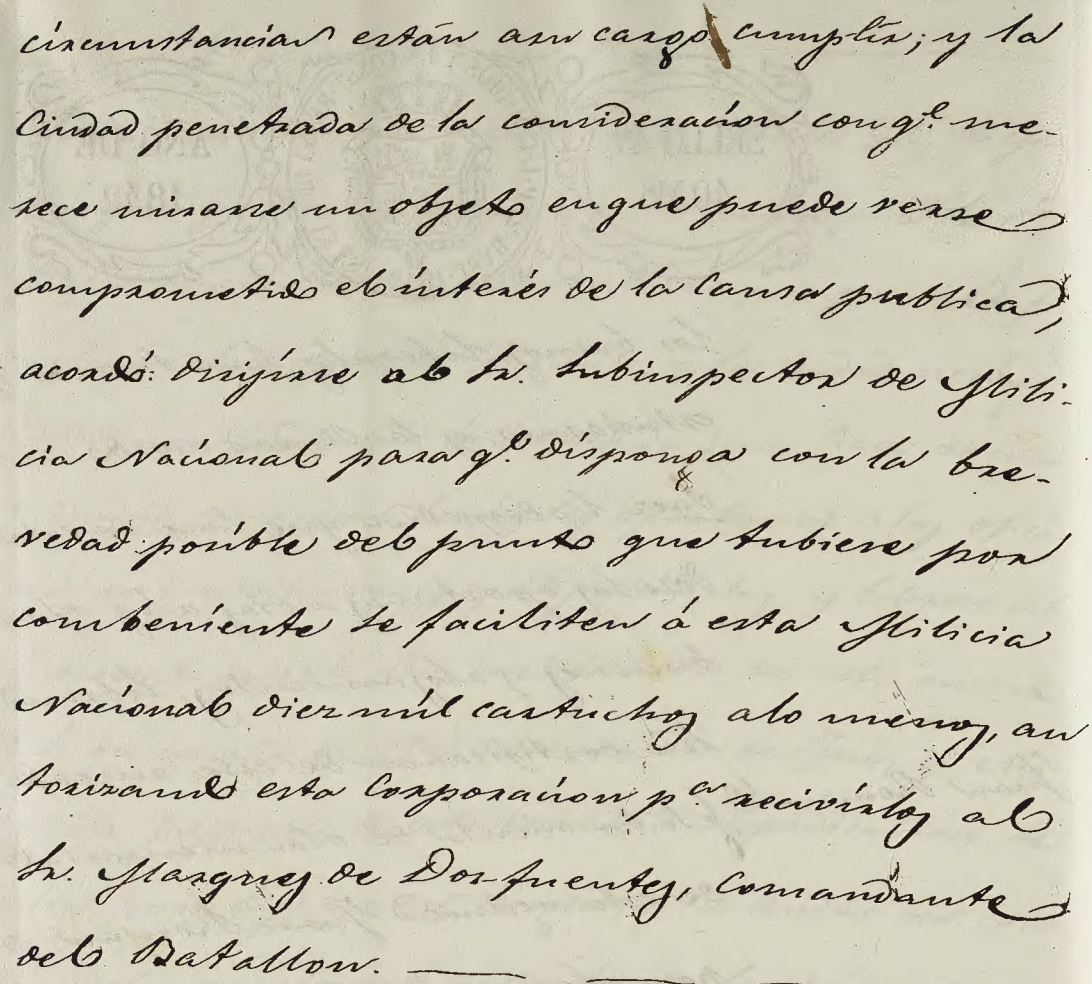 circunstancias están asu cargo cumplir; y la
Ciudad penetrada de la consideración con qᵉ. me-
rece mirarse un objeto en que puede verse
comprometido el interés de la Causa publica,
acordó: dirijirse al Sr. Subinspector de Mili-
cia Nacional para qᵉ. disponga con la bre-
vedad posible del punto que tubiese por
combeniente se faciliten á esta Milicia
Nacional diez mil cartuchos alo menos, au
torizando esta Corporacion pᵃ recivirlos al
Sr. Marques de Dos-fuentes, Comandante
del Batallon.